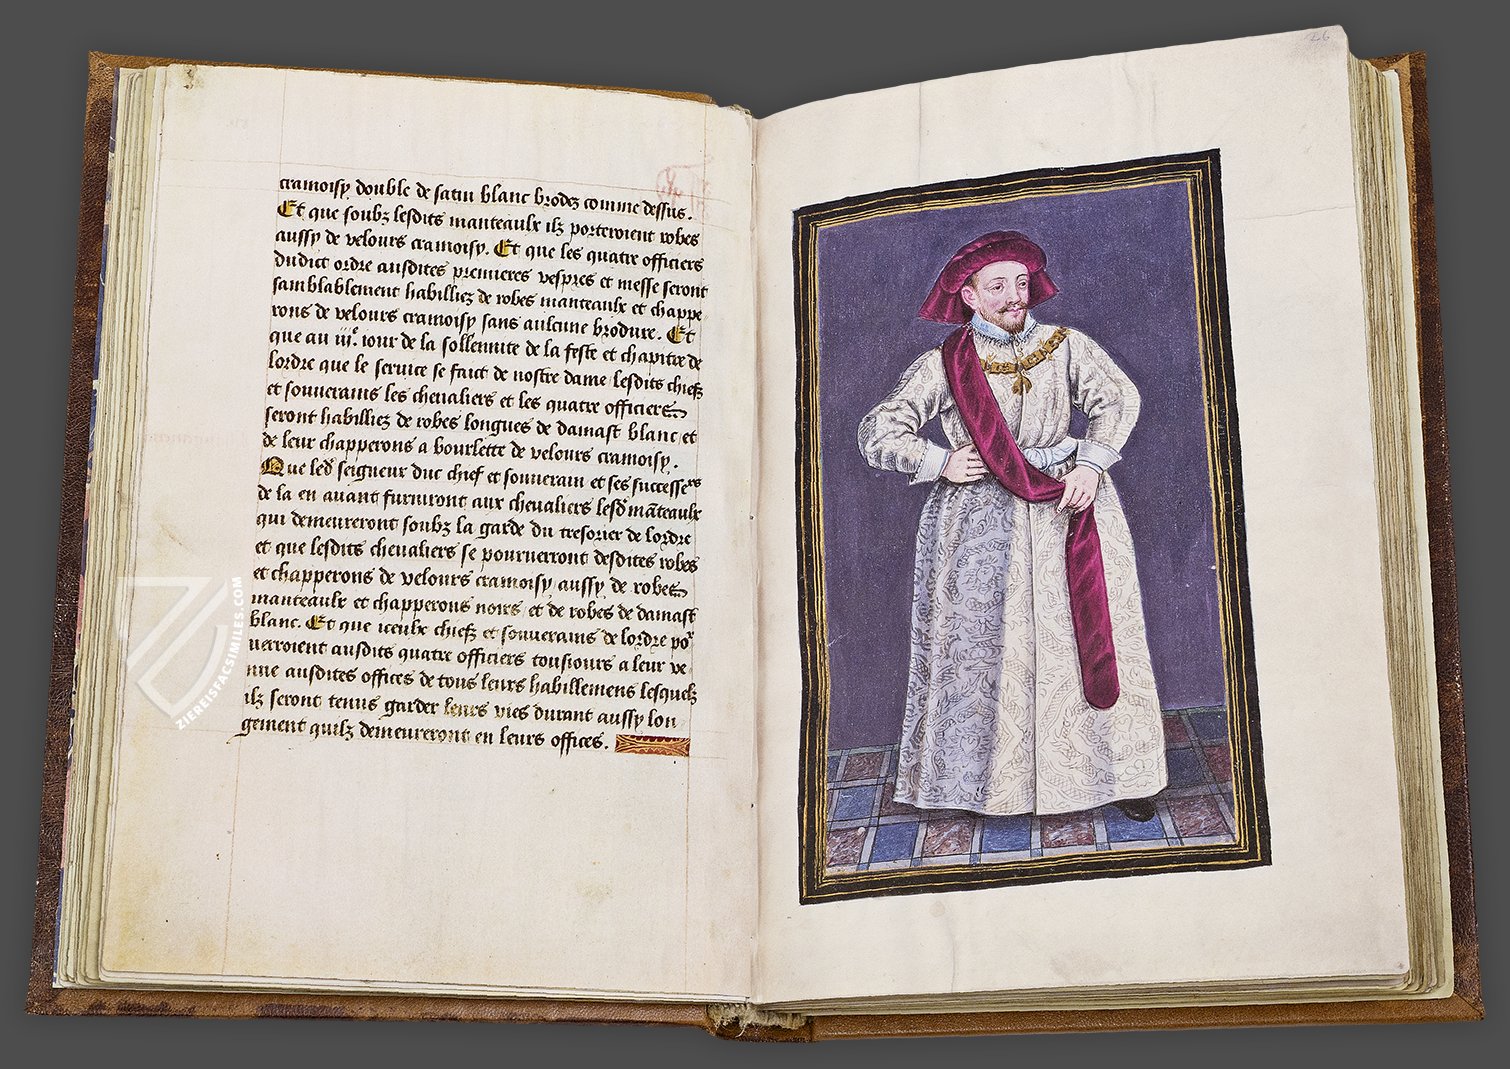 cramoisy double de satin blanc brodez comme dessus.
Et que soubz lesdits manteaulx ilz porteroient robes
aussy de velours cramoisy. Et que les quatre officiers
dudict ordre ausdites premieres vespres et messe seront
samblablement habilliez de robes manteaulx et chappe
rons de velours cramoisy sans aulcune brodure. Et
que au iii.e iour de la sollennite de la feste et chapitre de
lordre que le seruice se faict de nostre dame lesdits chiefz
et souuerains les cheualiers et les quatre officiers
seront habilliez de robes longues de damast blanc et
de leur chapperons a bourlette de velours cramoisy.
Que led seigneur duc chief et souuerain et ses successers
de la en auant furniront aux cheualiers lesd manteaulx
qui demeureront soubz la garde du tresorier de lordre
et que lesdits cheualiers se pourueront desdites robes
et chapperons de velours cramoisy, aussy de robes
manteaulx et chapperons noirs et de robes de damast
blanc. Et que iceulx chiefz et souuerains de lordre por
uerroient ausdits quatre officiers tousiours a leur ve
nue ausdites offices de tous leurs habillemens lesquelz
ilz seront tenus garder leurs vies durant aussy lon
gement quilz demeureront en leurs offices.
26
ZIEREISFACSIMILES.COM